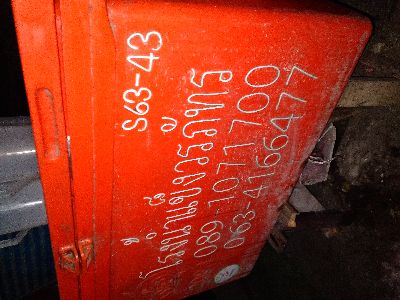 S63-43
โรงน้ำแข็งวรภัทร
089-1071700
063-4166477